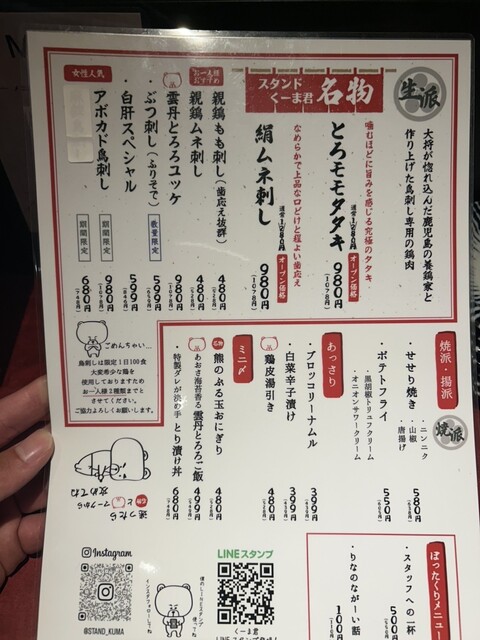 生派
大将が惚れ込んだ鹿児島の養鶏家と
作り上げた鳥刺し専用の鶏肉
スタンド
くーま君
名物
噛むほどに旨みを感じる究極のタタキ
とろモモタタキ
通常1280円
オープン価格
980円
(1078円)
なめらかで上品な口どけと程よい歯応え
絹ムネ刺し
通常1280円
オープン価格
980円
(1078円)
親鶏もも刺し(歯応え抜群)
480円
(528円)
お一人様
おすすめ
親鶏ムネ刺し
480円
(528円)
雲丹とろろユッケ
980円
(1078円)
・ぶつ刺し(ふりそで)
数量限定
599円
(659円)
・白肝スペシャル
期間限定
女性人気
アボカド鳥刺し
期間限定
680円
(748円)
ごめんちゃい…
鳥刺しは限定1日100食
大変希少な鶏を
使用しておりますため
お一人様2種類までと
させてください。
ご協力よろしくお願いします。
焼派・揚派
焼派
・せせり焼き
・ニンニク
・山椒
・唐揚げ
580円
・ポテトフライ
・黒胡椒トリュフクリーム
・オニオンサワークリーム
550円
あっさり
・ブロッコリーナムル
399円
・白菜辛子漬け
399円
鶏皮湯引き
480円
(528円)
ミニ〆
名物
熊のふる玉おにぎり
480円
(528円)
あおさ海苔香る雲丹とろろご飯
499円
・特製ダレが決め手とり漬け丼
680円
(748円)
迷ったら
名物と
マークから
攻めてね
Instagram
@STAND_KUMA
インスタフォローしてね
LINEスタンプ
僕のLINEスタンプ
使ってね
くーま君
ぼったくりメニュー
・スタッフへの一杯
・りなのながーい話